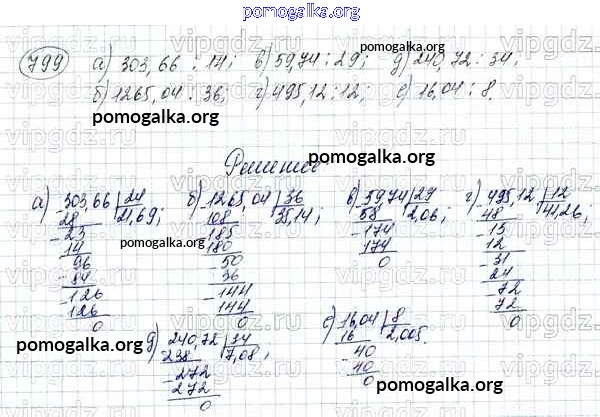 pomogalka.org
799 а) 303,66 : 14; в) 59,74 : 29; д) 240,72 : 34;
б) 1265,04 : 36; г) 495,12 : 12; е) 16,04 : 8.
pomogalka.org
Решение
а) 303,66 | 24 б) 1265,04 | 36 в) 59,74 | 29 г) 495,12 | 12
28 21,69; 108 35,14; 58 2,06; 48 41,26;
- 23 - 185 - 174 - 15
14 180 174 12
- 96 - 50 0 - 31
- 84 36 24
- 126 - 144 - 72
126 144 72
0 0 0
д) 240,72 | 34 е) 16,04 | 8
238 7,08; 16 2,005.
- 272 - 40
272 40
0 0
pomogalka.org
vipgdz.ru